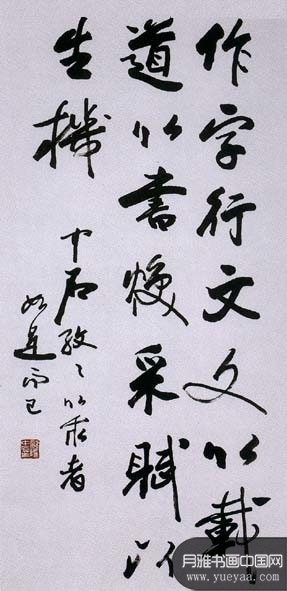 作字行文文以載
道以書煥采賦以
生機
中石孜〻以求者
如是而已
月雅书画中国网
www.yueyaa.com